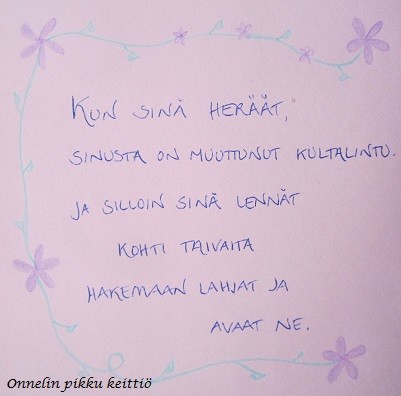 KUN SINÄ HERÄÄT,
SINUSTA ON MUUTTUNUT KULTALINTU.
JA SILLOIN SINÄ LENNÄT
KOHTI TAIVAITA
HAKEMAAN LAHJAT JA
AVAAT NE.
Onnelin pikku keittiö